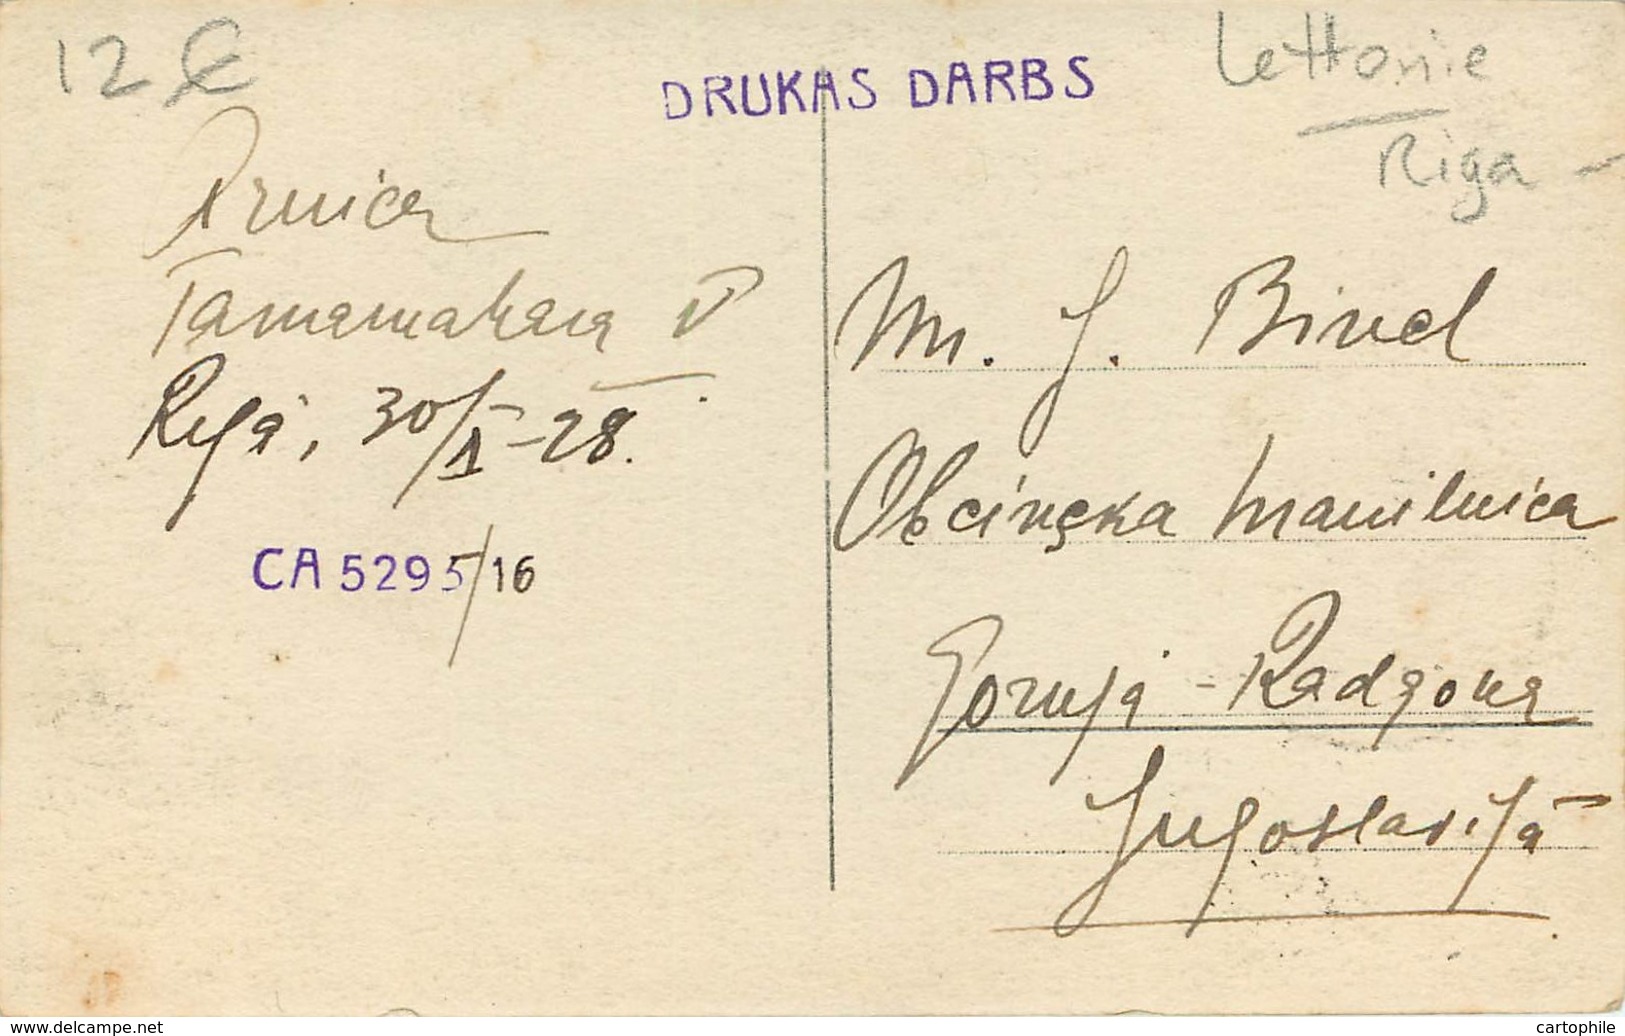 12 €
DRUKAS DARBS
Lettonie
Riga -
Rīgā, 30/I-28.
CA 5295/16
Mr. J. Bircl
Obcinska hranilnica
Gornja-Radgona
Jugoslavijā
www.delcampe.net
cartophile